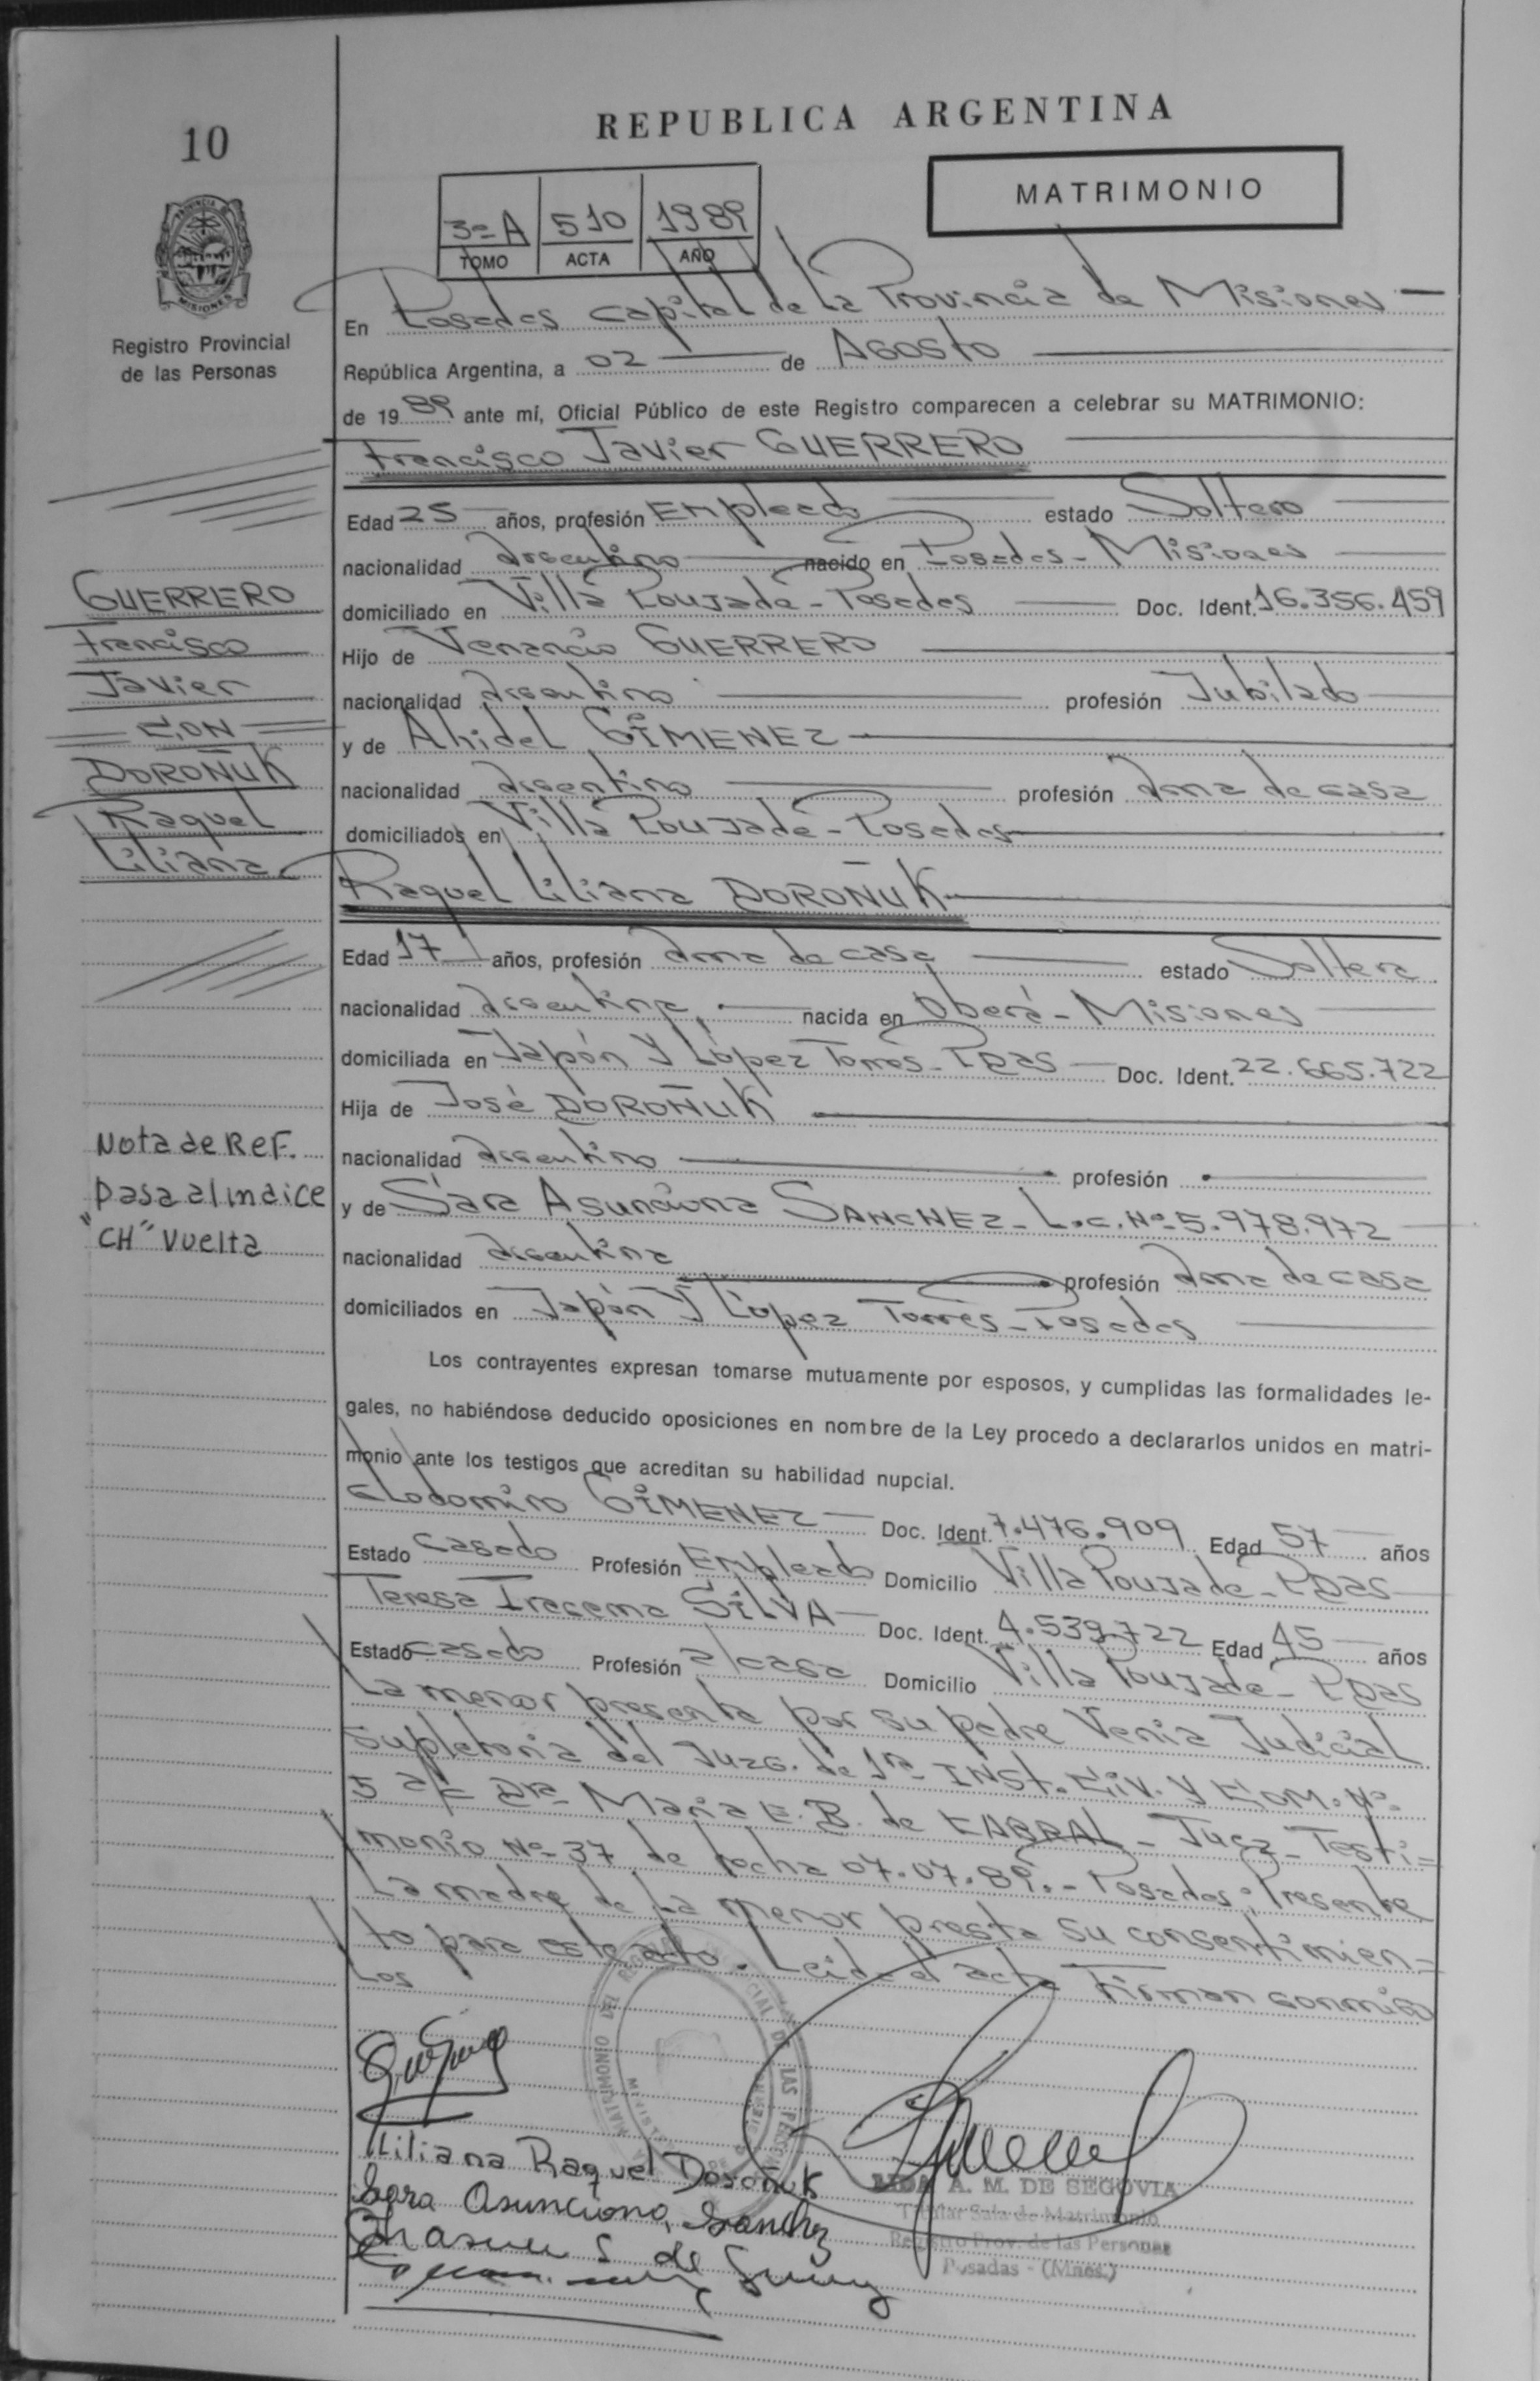 10
REPUBLICA ARGENTINA
MATRIMONIO
3º A 510 1989
TOMO ACTA AÑO
PROVINCIA DE MISIONES
Registro Provincial
de las Personas
En Posadas Capital de la Provincia de Misiones
República Argentina, a 02 de Agosto
de 1989 ante mí, Oficial Público de este Registro comparecen a celebrar su MATRIMONIO:
Francisco Javier GUERRERO
Edad 25 años, profesión Empleado estado Soltero
nacionalidad Argentino nacido en Posadas - Misiones
domiciliado en Villa Poujade - Posadas Doc. Ident. 16.356.459
Hijo de Venancio GUERRERO
nacionalidad Argentino profesión Jubilado
y de Ahidel GIMENEZ
nacionalidad Argentino profesión Ama de casa
domiciliados en Villa Poujade - Posadas
Raquel Liliana DOROÑUK
Edad 17 años, profesión Ama de casa estado Soltera
nacionalidad Argentina nacida en Oberá - Misiones
domiciliada en Japón y López Torres - Pdas Doc. Ident. 22.665.722
Hija de José DOROÑUK
nacionalidad Argentino profesión
y de Sara Asunciona SANCHEZ - L.C. Nº 5.978.972
nacionalidad Argentina profesión Ama de casa
domiciliados en Japón y López Torres - Posadas
Los contrayentes expresan tomarse mutuamente por esposos, y cumplidas las formalidades le-
gales, no habiéndose deducido oposiciones en nombre de la Ley procedo a declararlos unidos en matri-
monio ante los testigos que acreditan su habilidad nupcial.
Clodomiro GIMENEZ Doc. Ident. 7.476.909 Edad 57 años
Estado Casado Profesión Empleado Domicilio Villa Poujade - Pdas
Teresa Iracema SILVA Doc. Ident. 4.539.722 Edad 45 años
Estado casado Profesión a/casa Domicilio Villa Poujade - Pdas
La menor presenta por su padre Venia Judicial
Supletoria del Juzg. de 1ra INST. CIV. Y COM. Nº
5 a/c Dra Maria E. B. de CABRAL - Juez - Testi=
monio Nº 37 de fecha 07.07.89. - Posadas; Presente
La madre de la menor presta su consentimien=
to para este acto. Leída el acta Firman conmigo
Los
GUERRERO
Francisco
Javier
CON
DOROÑUK
Raquel
Liliana
Nota de Ref.
pasa al indice
"CH" Vuelta
Liliana Raquel Doroñuk
Sara Asunciona Sanchez
A. M. DE SEGOVIA
Titular Sala de Matrimonio
Registro Prov. de las Personas
Posadas - (Mnes.)